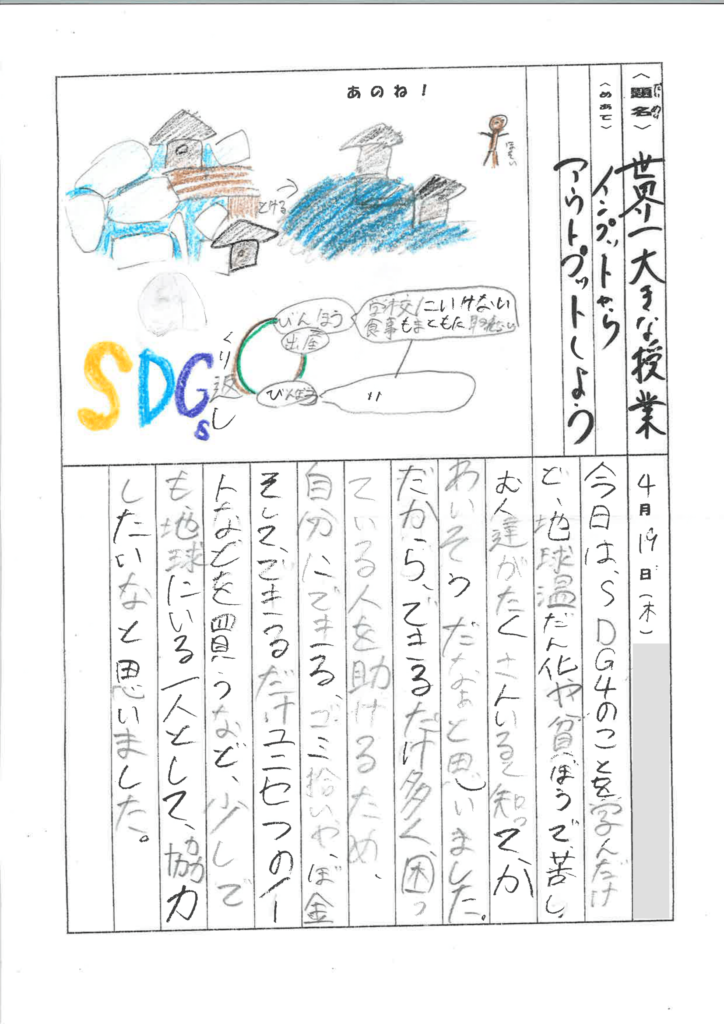 〈題名〉
だいめい
世界一大きな授業
〈めあて〉
インプットから
アウトプットしよう
あのね！
ほそい
とける
びんぼう
出産
びんぼう
くり返し
学校にいけない
食事もまともた
〃
SDGs
4月19日(木)
今日は、SDG4のことを学んだけ
ど、地球温だん化や貧ぼうで、苦し
む人達がたくさんいると知って、か
わいそうだなぁと思いました。
だから、できるだけ多く、困っ
ている人を助けるため、
自分にできる、ゴミ拾いや、ぼ金
そして、できるだけユニセフのノー
トなどを買うなど、少しで
も地球にいる一人として、協力
したいなと思いました。